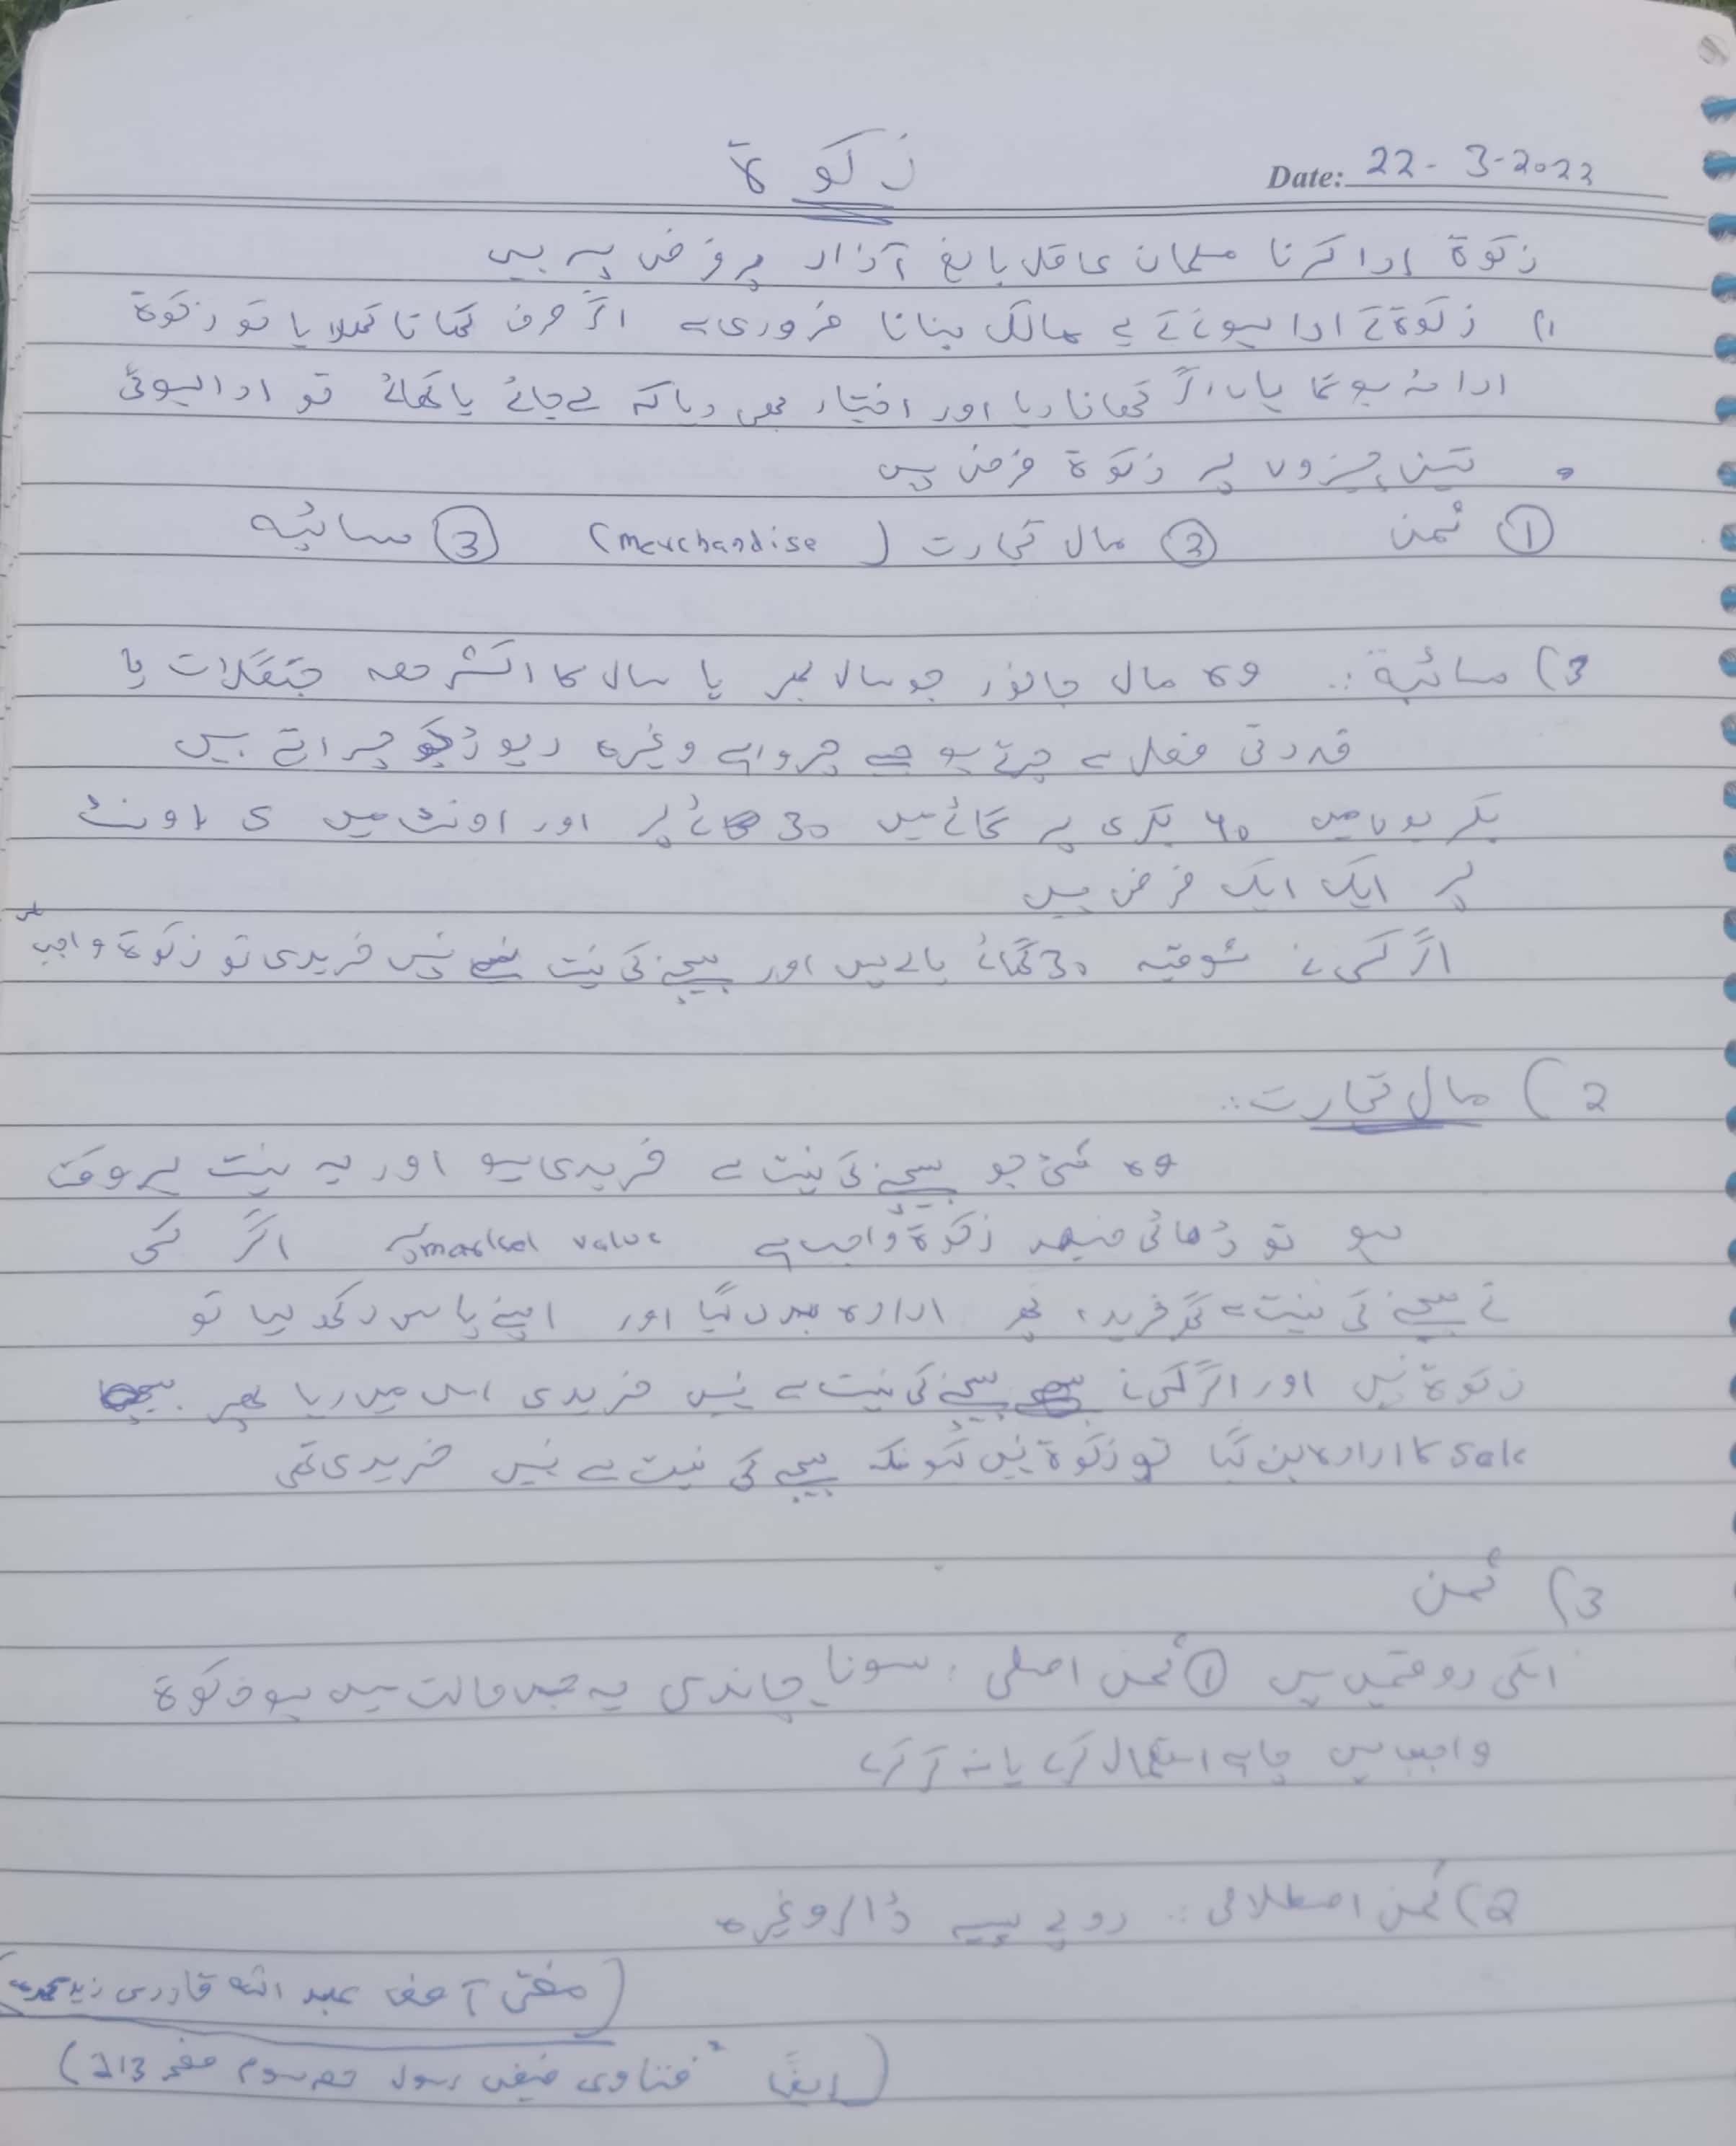 زکوۃ
Date: 22-3-2022
زکوۃ ادا کرنا مسلمان عاقل بالغ آزاد پر فرض ہیں
۱) زکوۃ کے ادا ہونے کے لیے مالک بنانا ضروری ہے اگر صرف کھانا کھلایا تو زکوۃ
ادا نہ ہوگا ہاں اگر کھانا دیا اور اختیار بھی دیا کہ لے جائے یا کھائے تو ادا ہوئی
• تین چیزوں پر زکوۃ فرض ہیں
① ثمن ② مال تجارت (merchandise) ③ سائبہ
3) سائبۃ :. وہ مال جانور جو سال بھر یا سال کا اکثر حصہ جنگلات یا
قدرتی فصل سے چرتے ہو جسے چرواہے وغیرہ ریوڑ کو چراتے ہیں
بکریوں میں 40 بکری پر گائے میں 30 گائے پر اور اونٹ میں 5 اونٹ
پر ایک ایک فرض ہیں
اگر کسی نے شوقیہ 30 گائے پالے ہیں اور بیچنے کی نیت سے نہیں خریدی تو زکوۃ واجب
2) مال تجارت :.
وہ شئ جو بیچنے کی نیت سے خریدی ہو اور یہ نیت ہر وقت
ہو تو ڈھائی فیصد زکوۃ واجب ہے market value پر اگر کسی
نے بیچنے کی نیت سے گھر خریدا، پھر ارادہ بدل گیا اور اپنے پاس رکھ لیا تو
زکوۃ نہیں اور اگر کسی نے بیچنے کی نیت سے نہیں خریدی اس میں رہا پھر
sale کا ارادہ بن گیا تو زکوۃ نہیں کیونکہ بیچنے کی نیت سے نہیں خریدی تھی
3) ثمن
اسکی دو قسمیں ہیں ① ثمن اصلی : سونا چاندی یہ جس حالت میں ہو زکوۃ
واجب ہیں چاہے استعمال کرے یا نہ کرے
2) ثمن اصطلاحی :. روپے پیسے ڈالر وغیرہ
(مفتی آصف عبد اللہ قادری زید مجدہ)
(ایضاً "فتاوی فیض رسول حصہ سوم صفحہ 213)